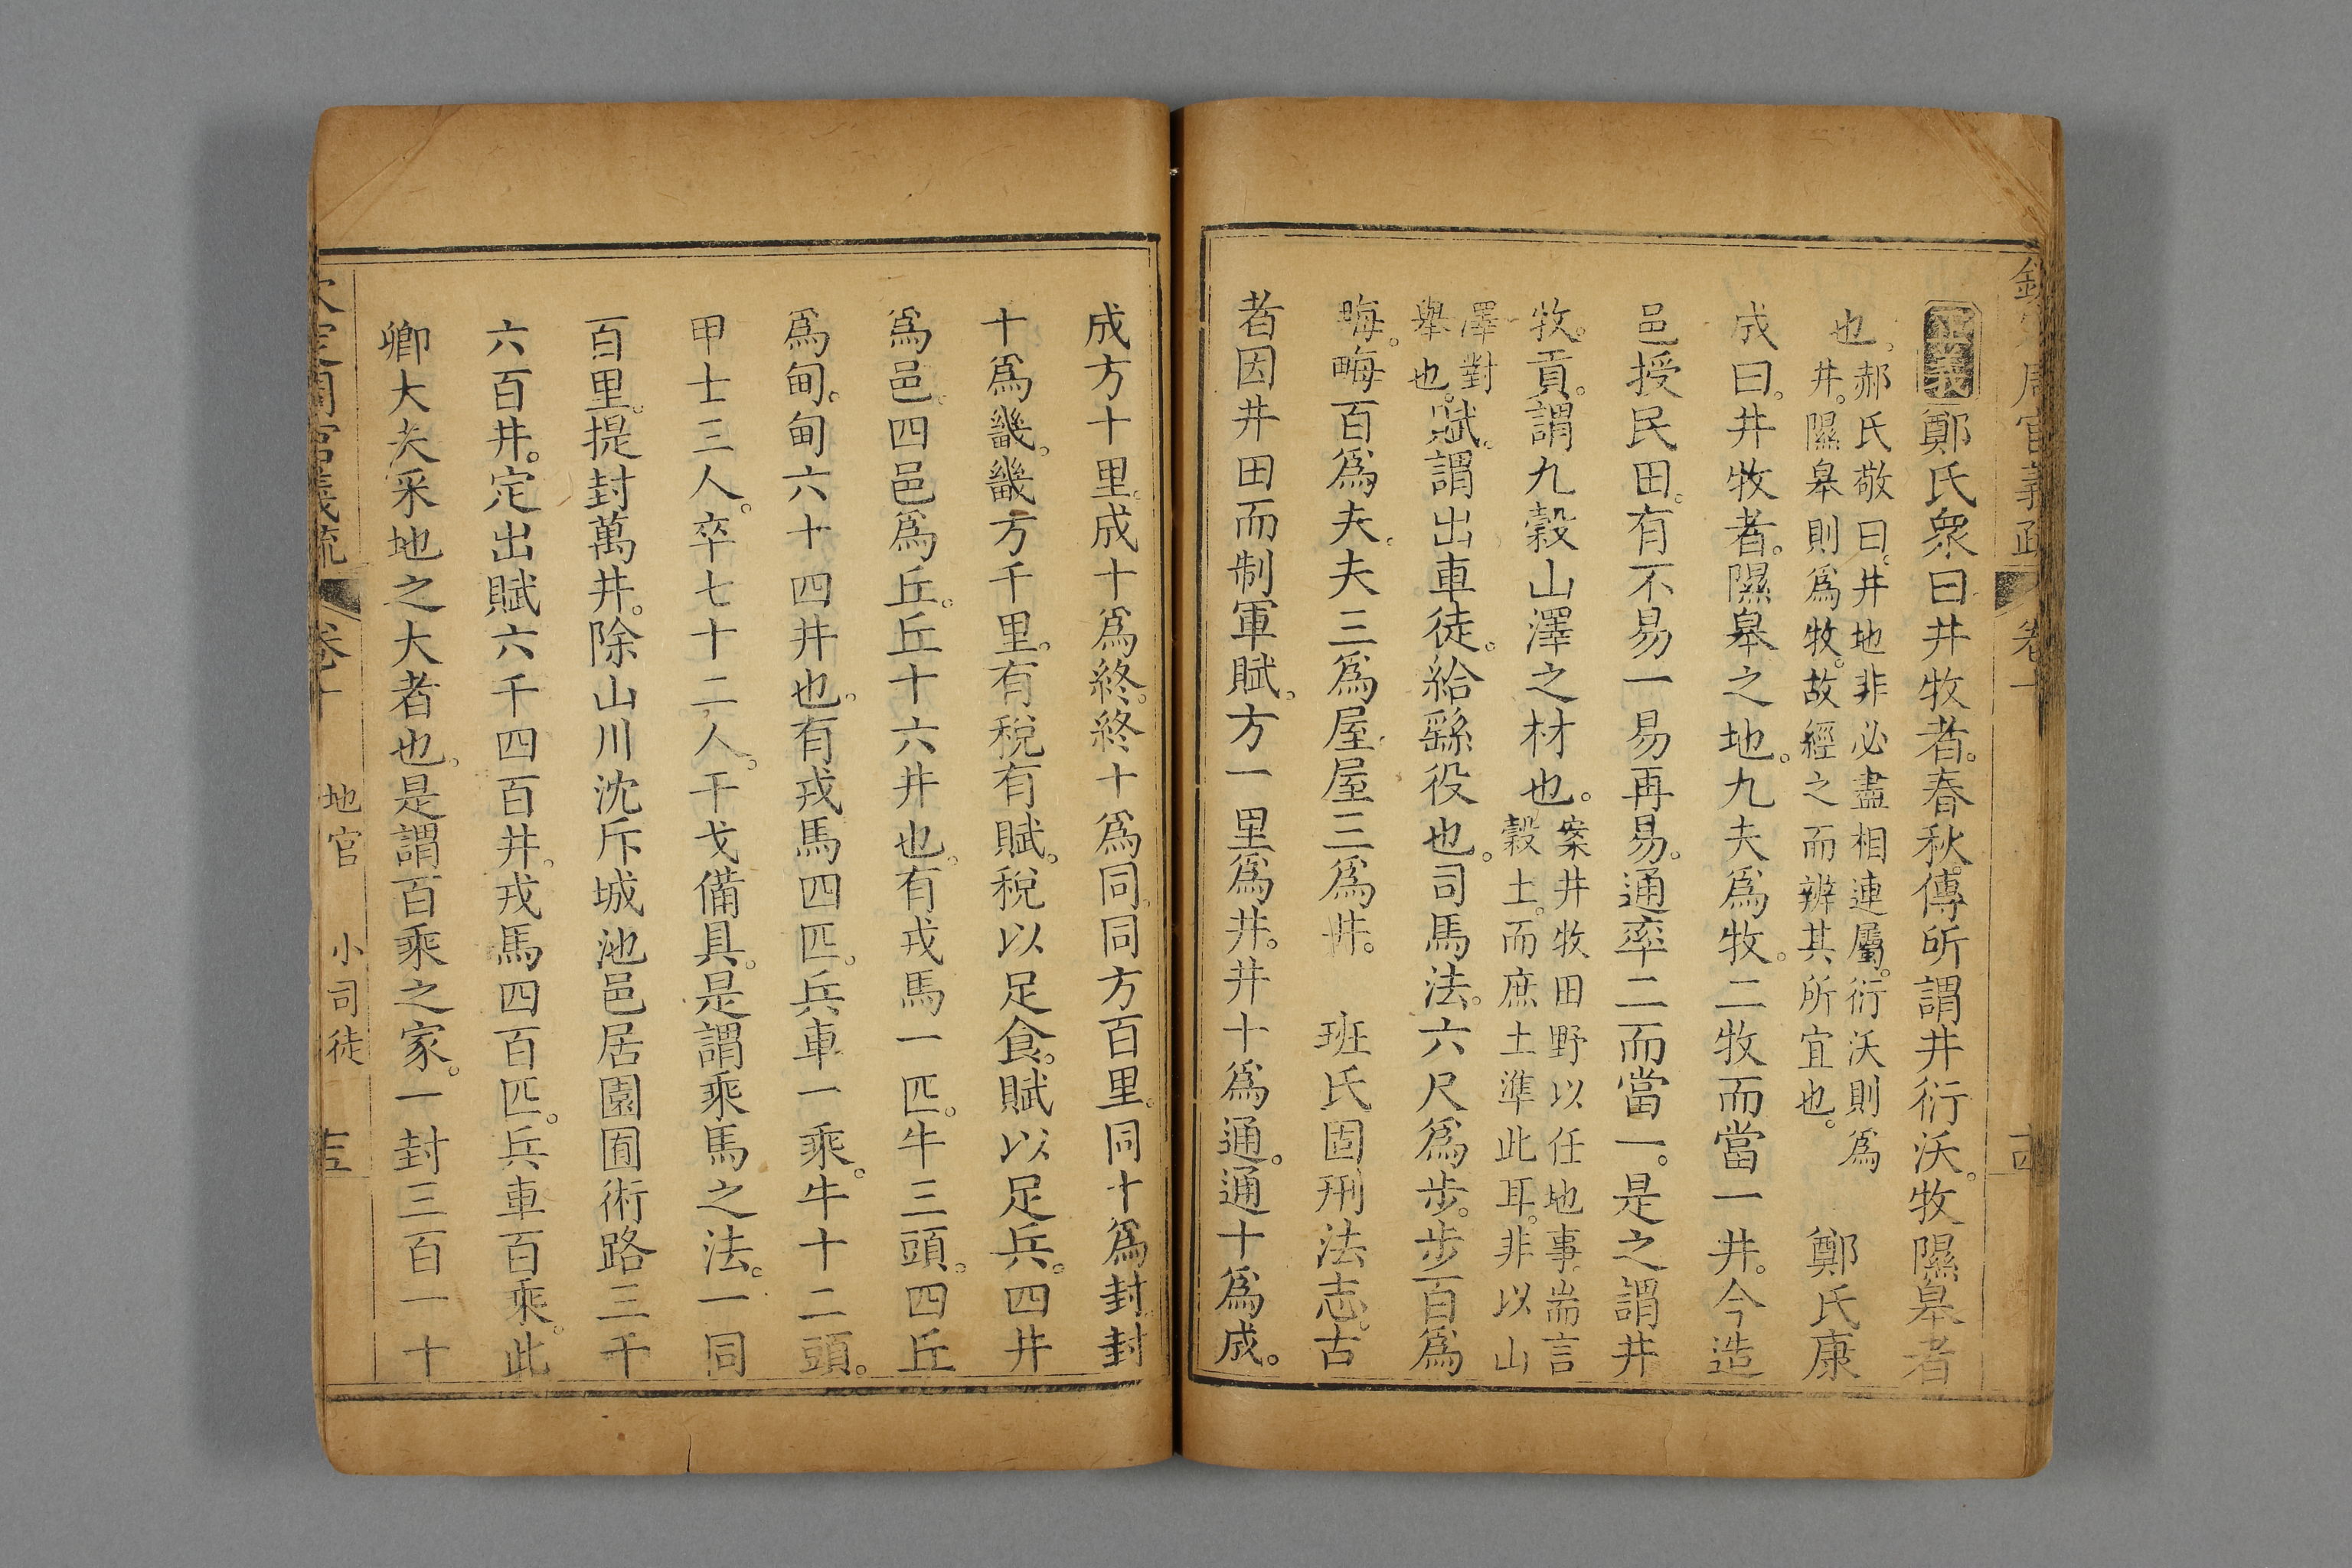 正義鄭氏衆曰井牧者。春秋傳所謂井衍沃。牧隰皋者
也。郝氏敬曰。井地非必盡相連屬。衍沃則爲
井。隰皋則爲牧。故經之而辨其所宜也。 鄭氏康
成曰。井牧者。隰皋之地。九夫爲牧。二牧而當一井。今造
邑授民田。有不易一易再易。通率二而當一。是之謂井
牧。貢。謂九穀山澤之材也。案井牧田野以任地事。耑言
穀土。而庶土準此耳。非以山
澤對
舉也。賦。謂出車徒。給繇役也。司馬法。六尺爲步。步百爲
晦。晦百爲夫。夫三爲屋。屋三爲井。 班氏固刑法志。古
者因井田而制軍賦。方一里爲井。井十爲通。通十爲成。
成方十里。成十爲終。終十爲同。同方百里。同十爲封。封
十爲畿。畿方千里。有稅有賦。稅以足食。賦以足兵。四井
爲邑。四邑爲丘。丘十六井也。有戎馬一匹。牛三頭。四丘
爲甸。甸六十四井也。有戎馬四匹。兵車一乘。牛十二頭。
甲士三人。卒七十二人。干戈備具。是謂乘馬之法。一同
百里。提封萬井。除山川沈斥城池邑居園囿術路三千
六百井。定出賦六千四百井。戎馬四百匹。兵車百乘。此
卿大夫采地之大者也。是謂百乘之家。一封三百一十
定周官義疏 卷十 地官 小司徒